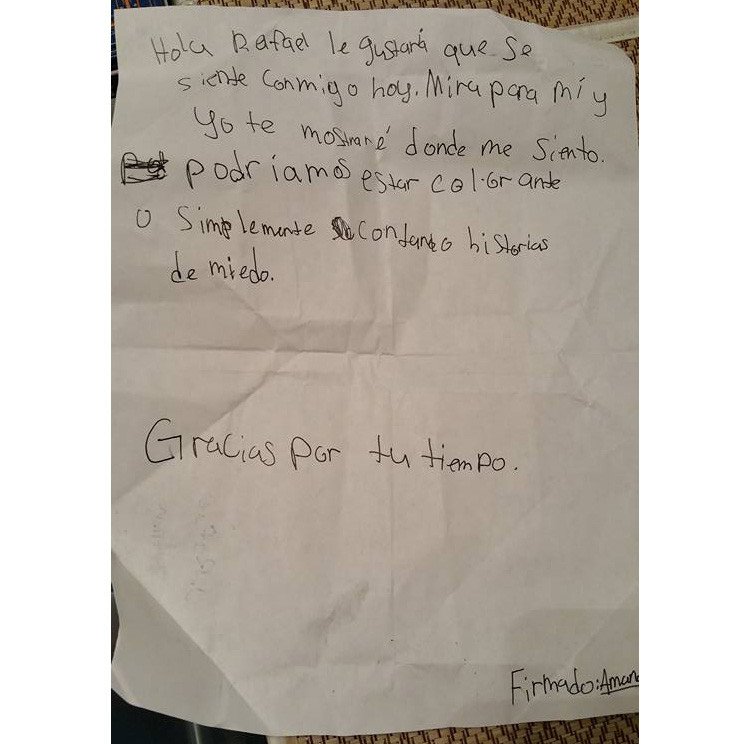 Hola Rafael le gustará que se
siente conmigo hoy. Mira para mí y
yo te mostraré donde me siento.
podriamos estar colorante
o simplemente contando historias
de miedo.
Gracias por tu tiempo.
Firmado: